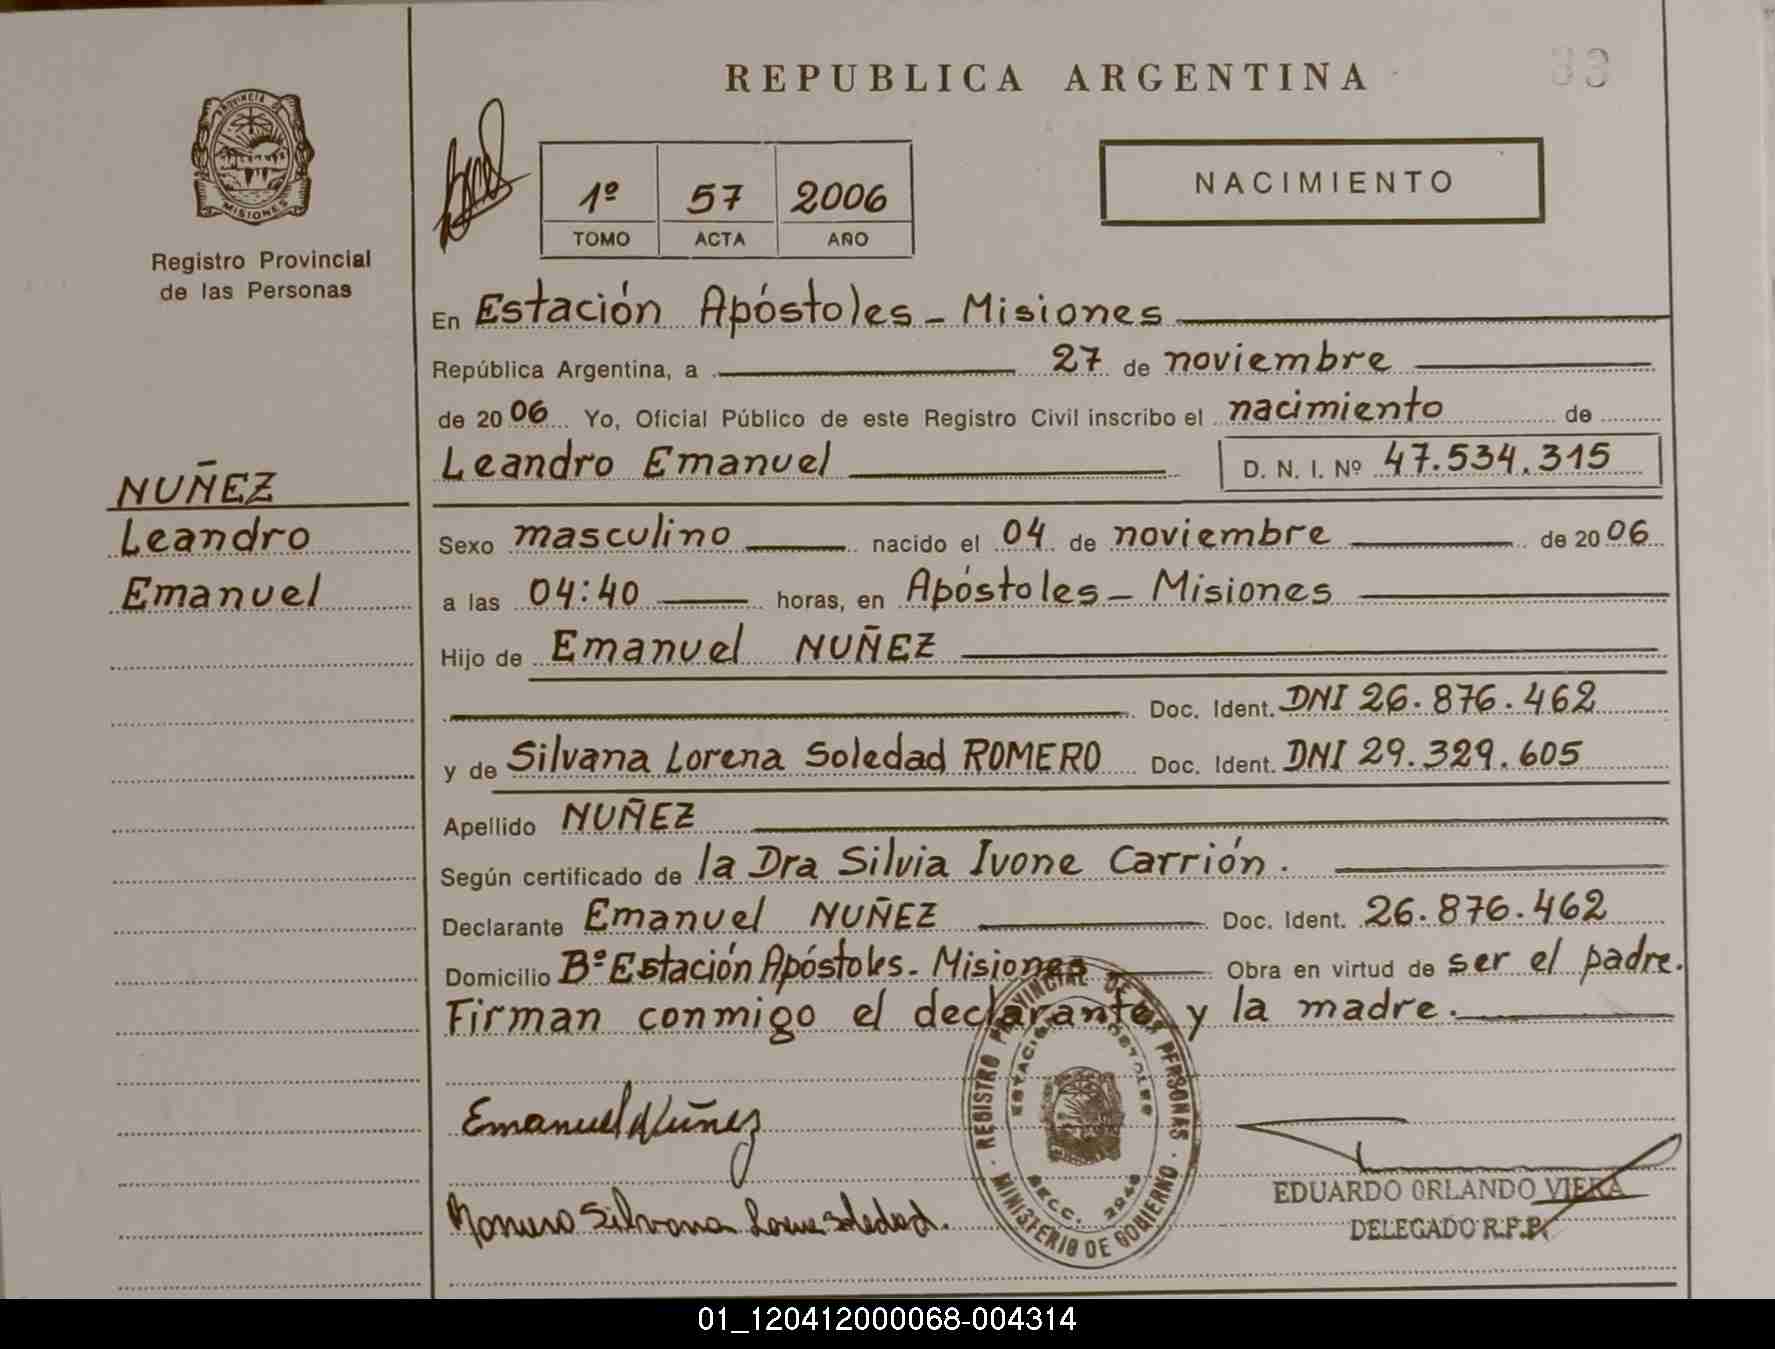 REPUBLICA ARGENTINA
33
PROVINCIA DE
MISIONES
Registro Provincial
de las Personas
1º 57 2006
TOMO ACTA AÑO
NACIMIENTO
En Estación Apóstoles - Misiones
República Argentina, a 27 de noviembre
de 2006 Yo, Oficial Público de este Registro Civil inscribo el nacimiento de
Leandro Emanuel D. N. I. Nº 47.534.315
NUÑEZ
Leandro
Emanuel
Sexo masculino nacido el 04 de noviembre de 2006
a las 04:40 horas, en Apóstoles - Misiones
Hijo de Emanuel NUÑEZ
Doc. Ident. DNI 26.876.462
y de Silvana Lorena Soledad ROMERO Doc. Ident. DNI 29.329.605
Apellido NUÑEZ
Según certificado de la Dra Silvia Ivone Carrión.
Declarante Emanuel NUÑEZ Doc. Ident. 26.876.462
Domicilio Bº Estación Apóstoles - Misiones Obra en virtud de ser el padre.
Firman conmigo el declarante y la madre.
REGISTRO PROVINCIAL DE LAS PERSONAS
ESTACION APOSTOLES
SECC. 2948
MINISTERIO DE GOBIERNO
Emanuel Núñez
Romero Silvana Lorena Soledad.
EDUARDO ORLANDO VIERA
DELEGADO R.P.P.
01_120412000068-004314